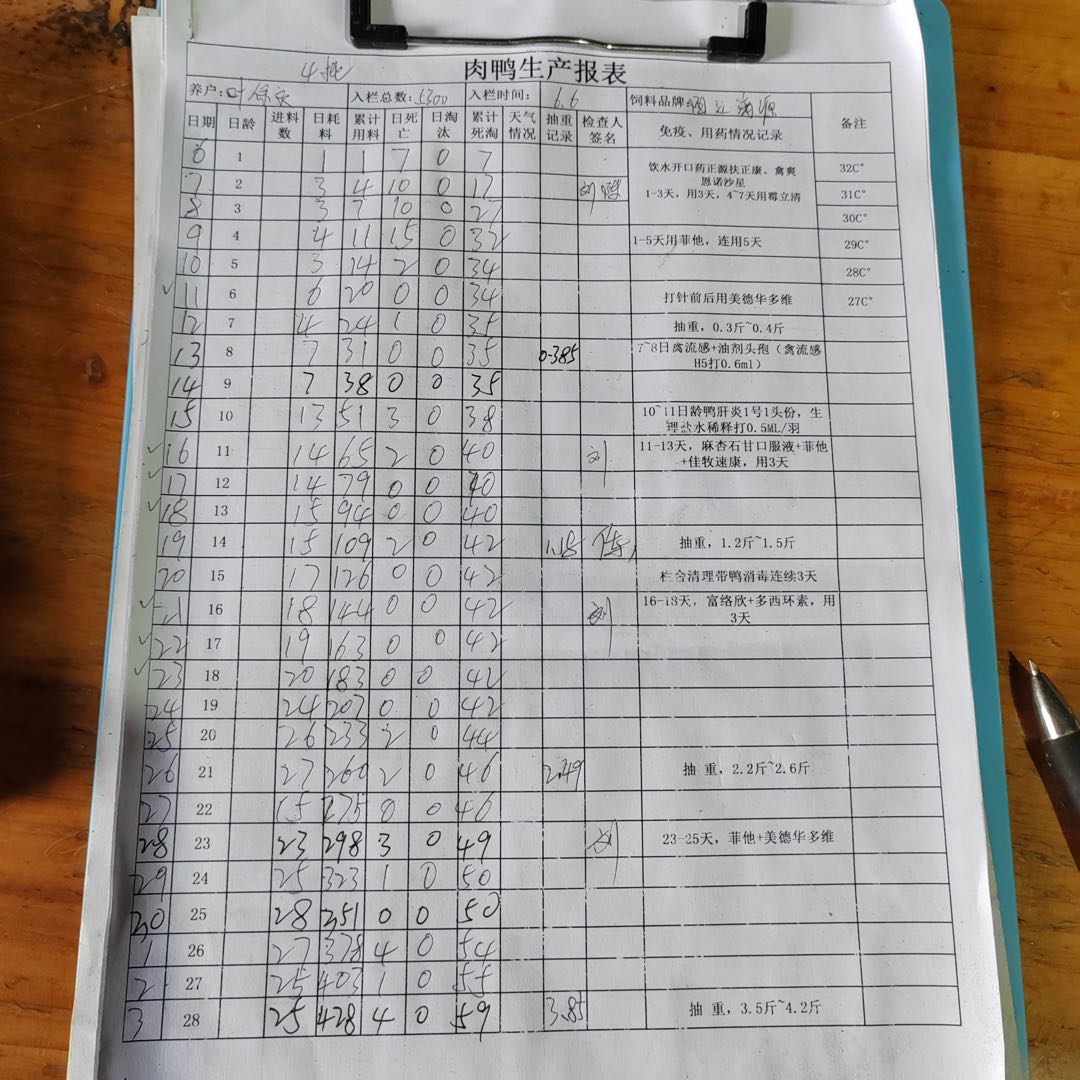 4批 肉鸭生产报表
养户: 叶 入栏总数: 5300 入栏时间: 6.6 饲料品牌 备注
日期 日龄 进料数 日耗料 累计用料 日死亡 日淘汰 累计死淘 天气情况 抽重记录 检查人签名 免疫、用药情况记录
6 1 1 1 7 0 7 饮水开口药正源扶正康、禽爽 32C°
恩诺沙星
7 2 3 4 10 0 17 刘 1-3天，用3天，4~7天用霉立清 31C°
8 3 3 7 10 0 27 30C°
9 4 4 11 15 0 32 1-5天用菲他，连用5天 29C°
10 5 3 14 2 0 34 28C°
✓ 11 6 6 20 0 0 34 打针前后用美德华多维 27C°
12 7 4 24 1 0 35 抽重，0.3斤~0.4斤
13 8 7 31 0 0 35 0.385 7~8日禽流感+油剂头孢（禽流感
H5打0.6ml）
14 9 7 38 0 0 35
15 10 13 51 3 0 38 10~11日龄鸭肝炎1号1头份，生
理盐水稀释打0.5ML/羽
✓ 16 11 14 65 2 0 40 刘 11-13天，麻杏石甘口服液+菲他
+佳牧速康，用3天
✓ 17 12 14 79 0 0 40
✓ 18 13 15 94 0 0 40
19 14 15 109 2 0 42 1.18 抽重，1.2斤~1.5斤
20 15 17 126 0 0 42 栏舍清理带鸭消毒连续3天
✓ 21 16 18 144 0 0 42 刘 16-18天，富络欣+多西环素，用
3天
✓ 22 17 19 163 0 0 42
✓ 23 18 20 183 0 0 42
24 19 24 207 0 0 42
25 20 26 233 2 0 44
26 21 27 260 2 0 46 2.49 抽 重，2.2斤~2.6斤
27 22 15 275 0 0 46
28 23 23 298 3 0 49 刘 23-25天，菲他+美德华多维
29 24 25 323 1 0 50
30 25 28 351 0 0 50
1 26 27 378 4 0 54
2 27 25 403 1 0 55
3 28 25 428 4 0 59 3.85 抽 重，3.5斤~4.2斤